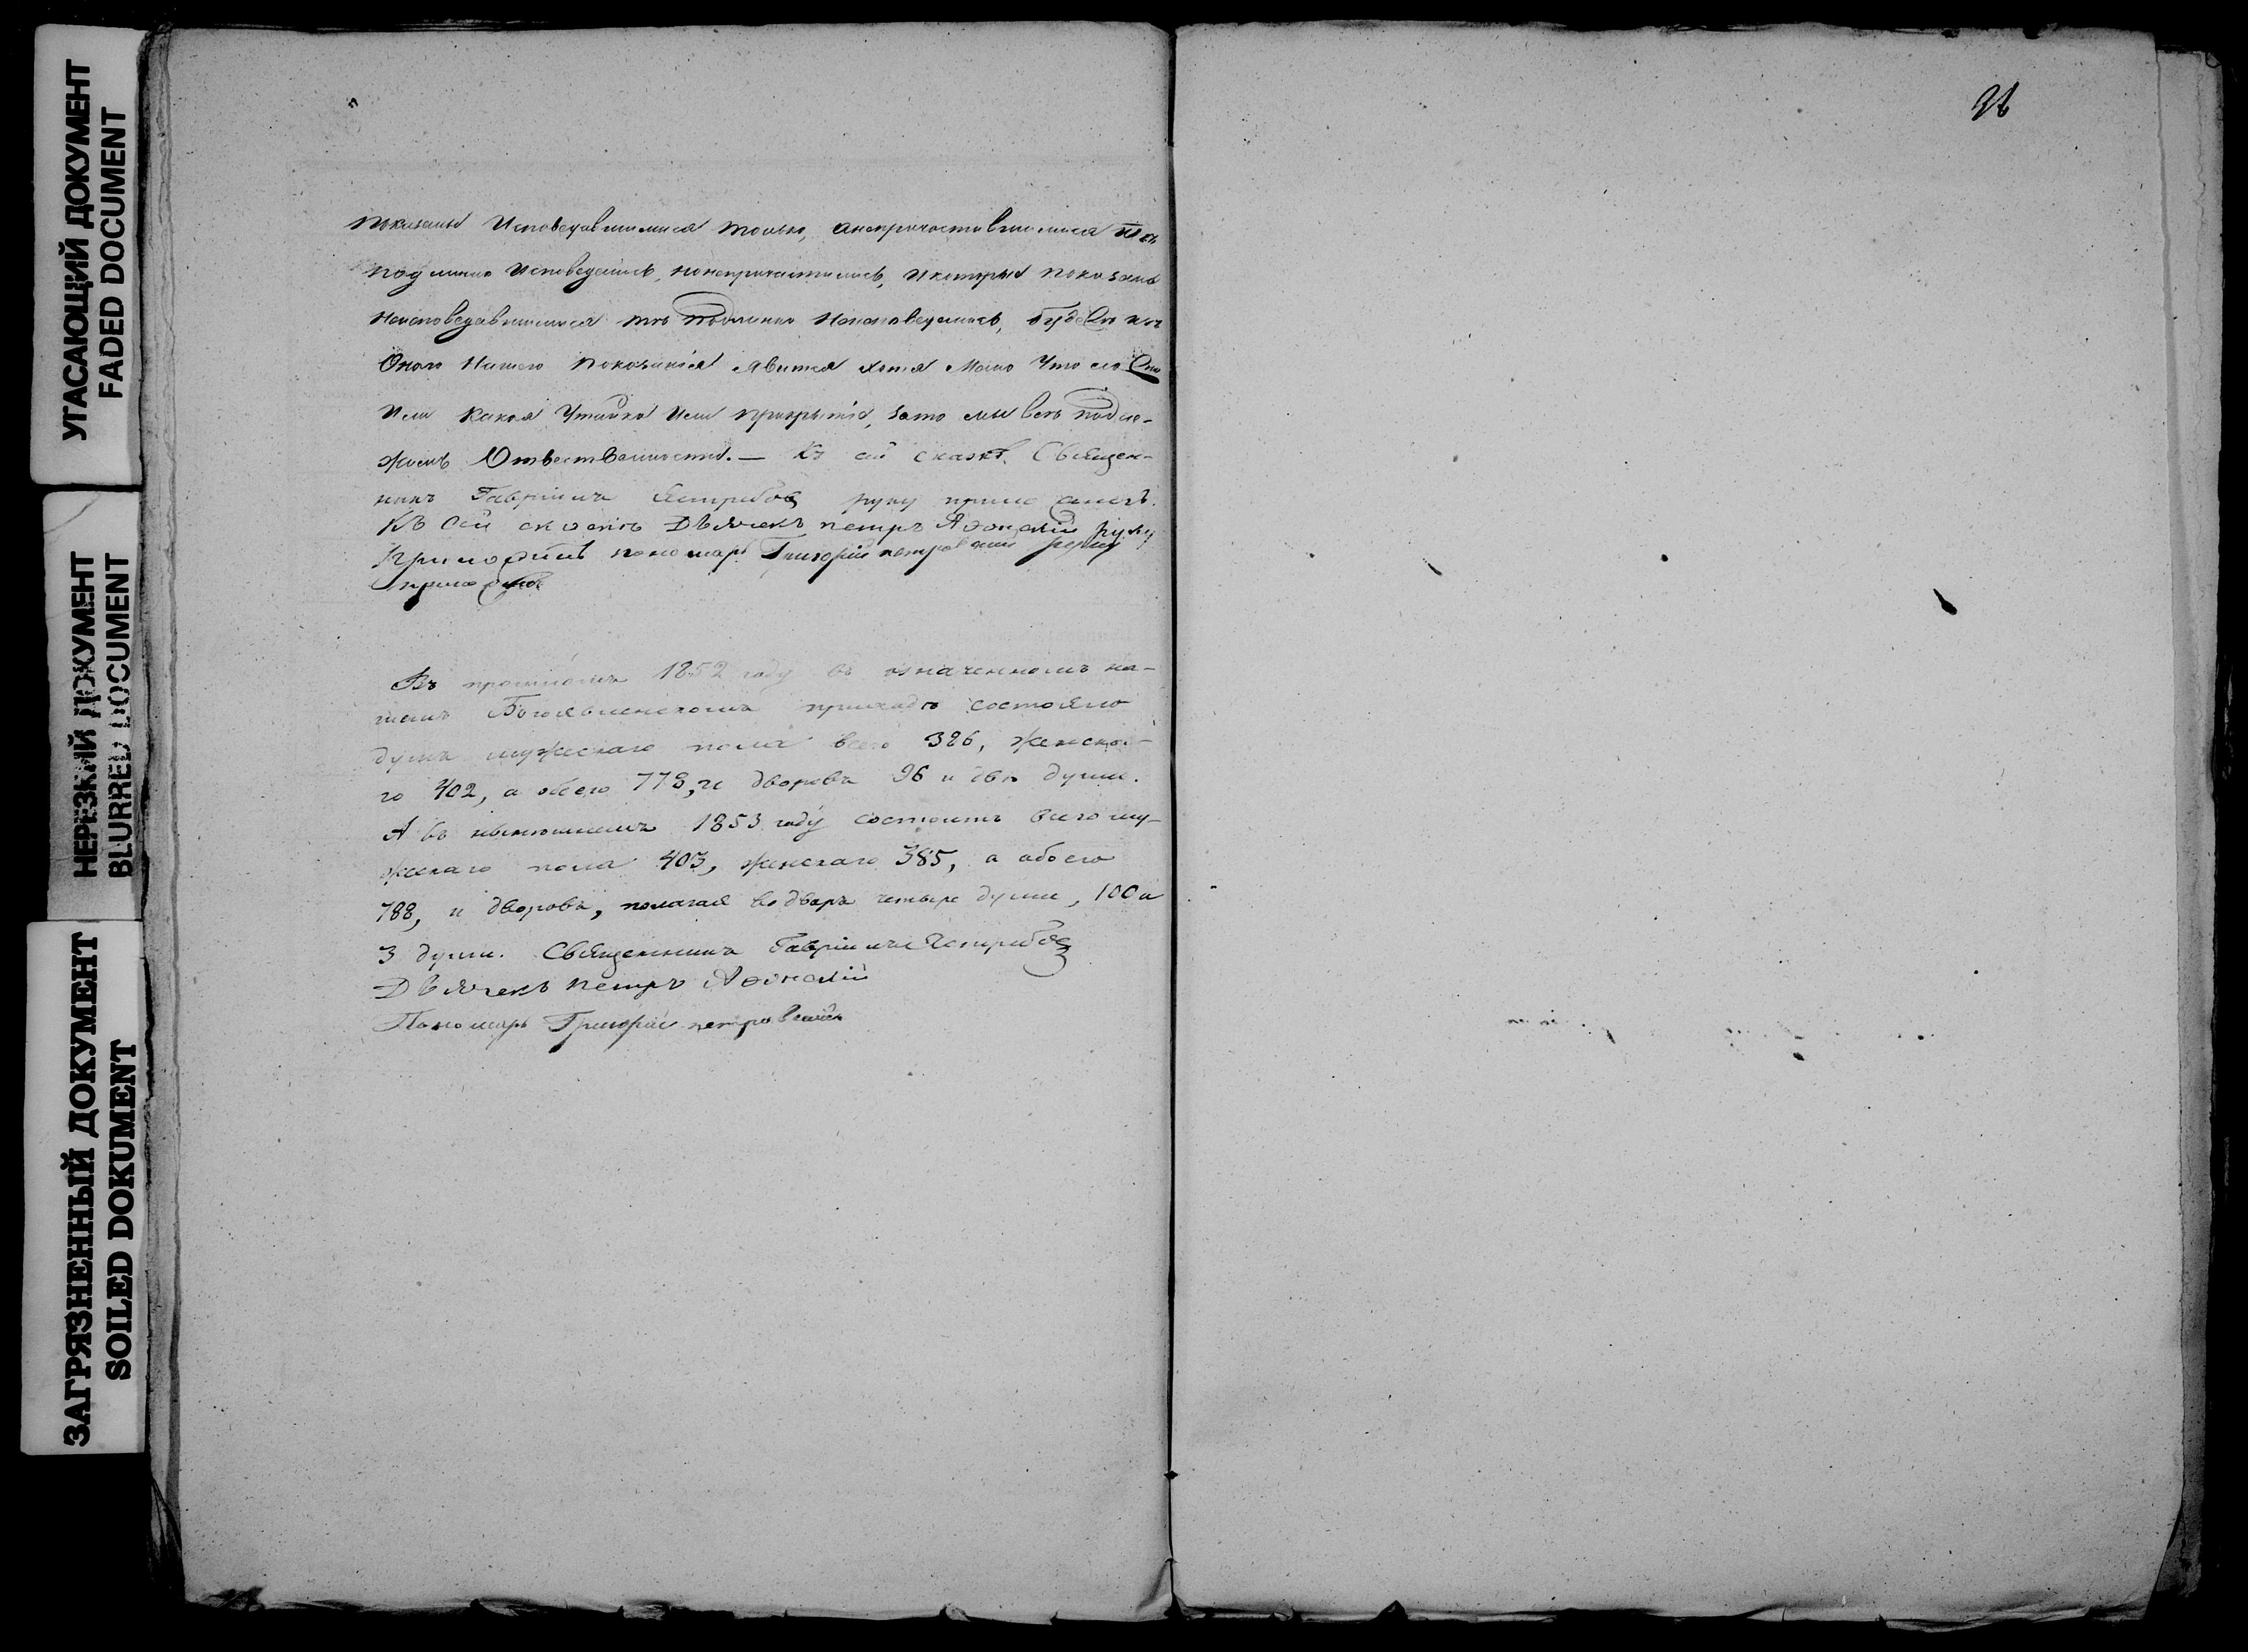 УГАСАЮЩИЙ ДОКУМЕНТ
FADED DOCUMENT
НЕРЕЗКИЙ ДОКУМЕНТ
BLURRED DOCUMENT
ЗАГРЯЗНЕННЫЙ ДОКУМЕНТ
SOILED DOKUMENT
показаны Исповедавшимися токмо, анепричастившимися тѣ
подлинно Исповедались, нонепричастились, Икоторые показаны
Неисповедавшимися тѣ подлинно Неисповедались, буде
Оного Нашего показанія явится хотя Мало Что
Или какая Утайка Или прикрытіе, зато мы всѣ подле-
жимъ Отвѣтственности. — Къ сей сказкѣ Священ-
никъ Гавріилъ Ястребовъ руку приложилъ.
Къ сей сказкѣ Дьячекъ петръ Аѳонскій руку
приложилъ пономарь Григорій петровскій руку
приложилъ
Въ прошломъ 1852 году въ означенномъ на-
шемъ Богоявленскомъ приходѣ состояло
душъ мужескаго пола всего 386, женска-
го 402, а обоего 778, и дворовъ 96 и двѣ души.
А въ нынѣшнемъ 1853 году состоитъ всего му-
жескаго пола 403, женскаго 385, а обоего
788, и дворовъ, полагая во дворъ четыре души, 100 и
3 души. Священникъ Гавріилъ Ястребовъ
Дьячекъ петръ Аѳонскій
Пономарь Григорій петровскій